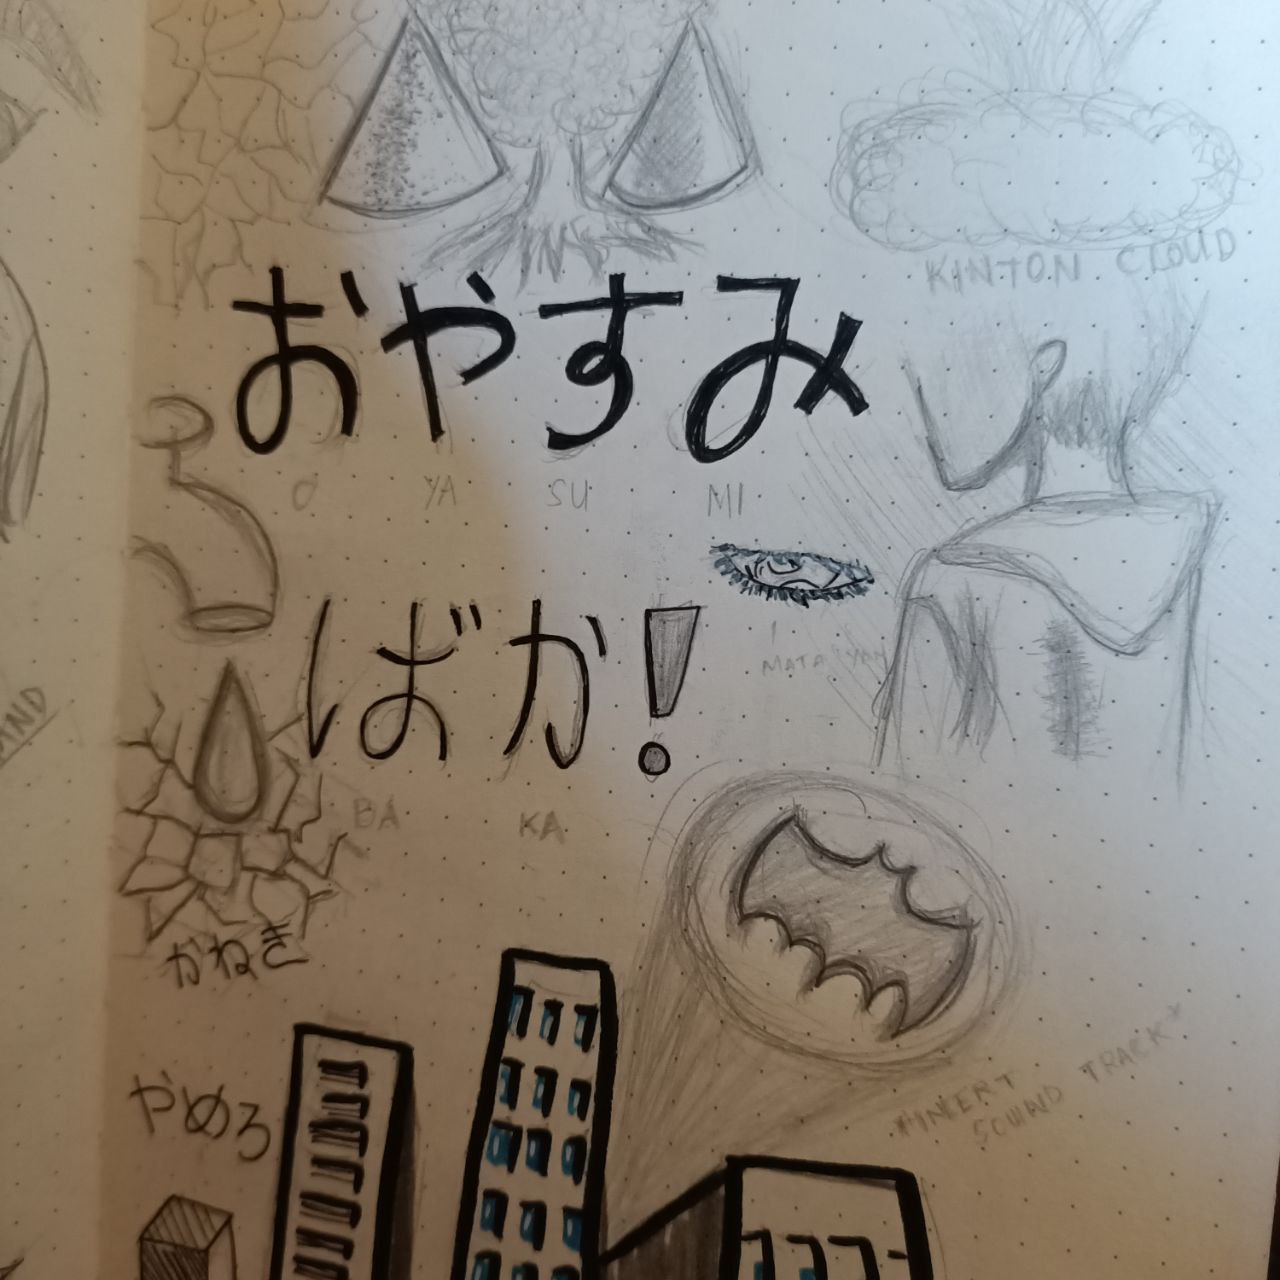 KINTON CLOUD
おやすみ
O YA SU MI
ばか!
MATA YAN
BA KA
かねき
やめろ
*INCERT SOUND TRACK*